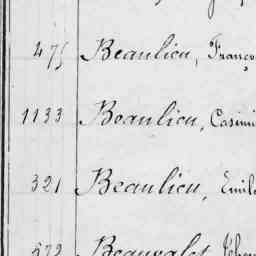 475 Beaulieu, Franço
1133 Beaulieu, Casimi
321 Beaulieu, Emile
572 Beauvalet